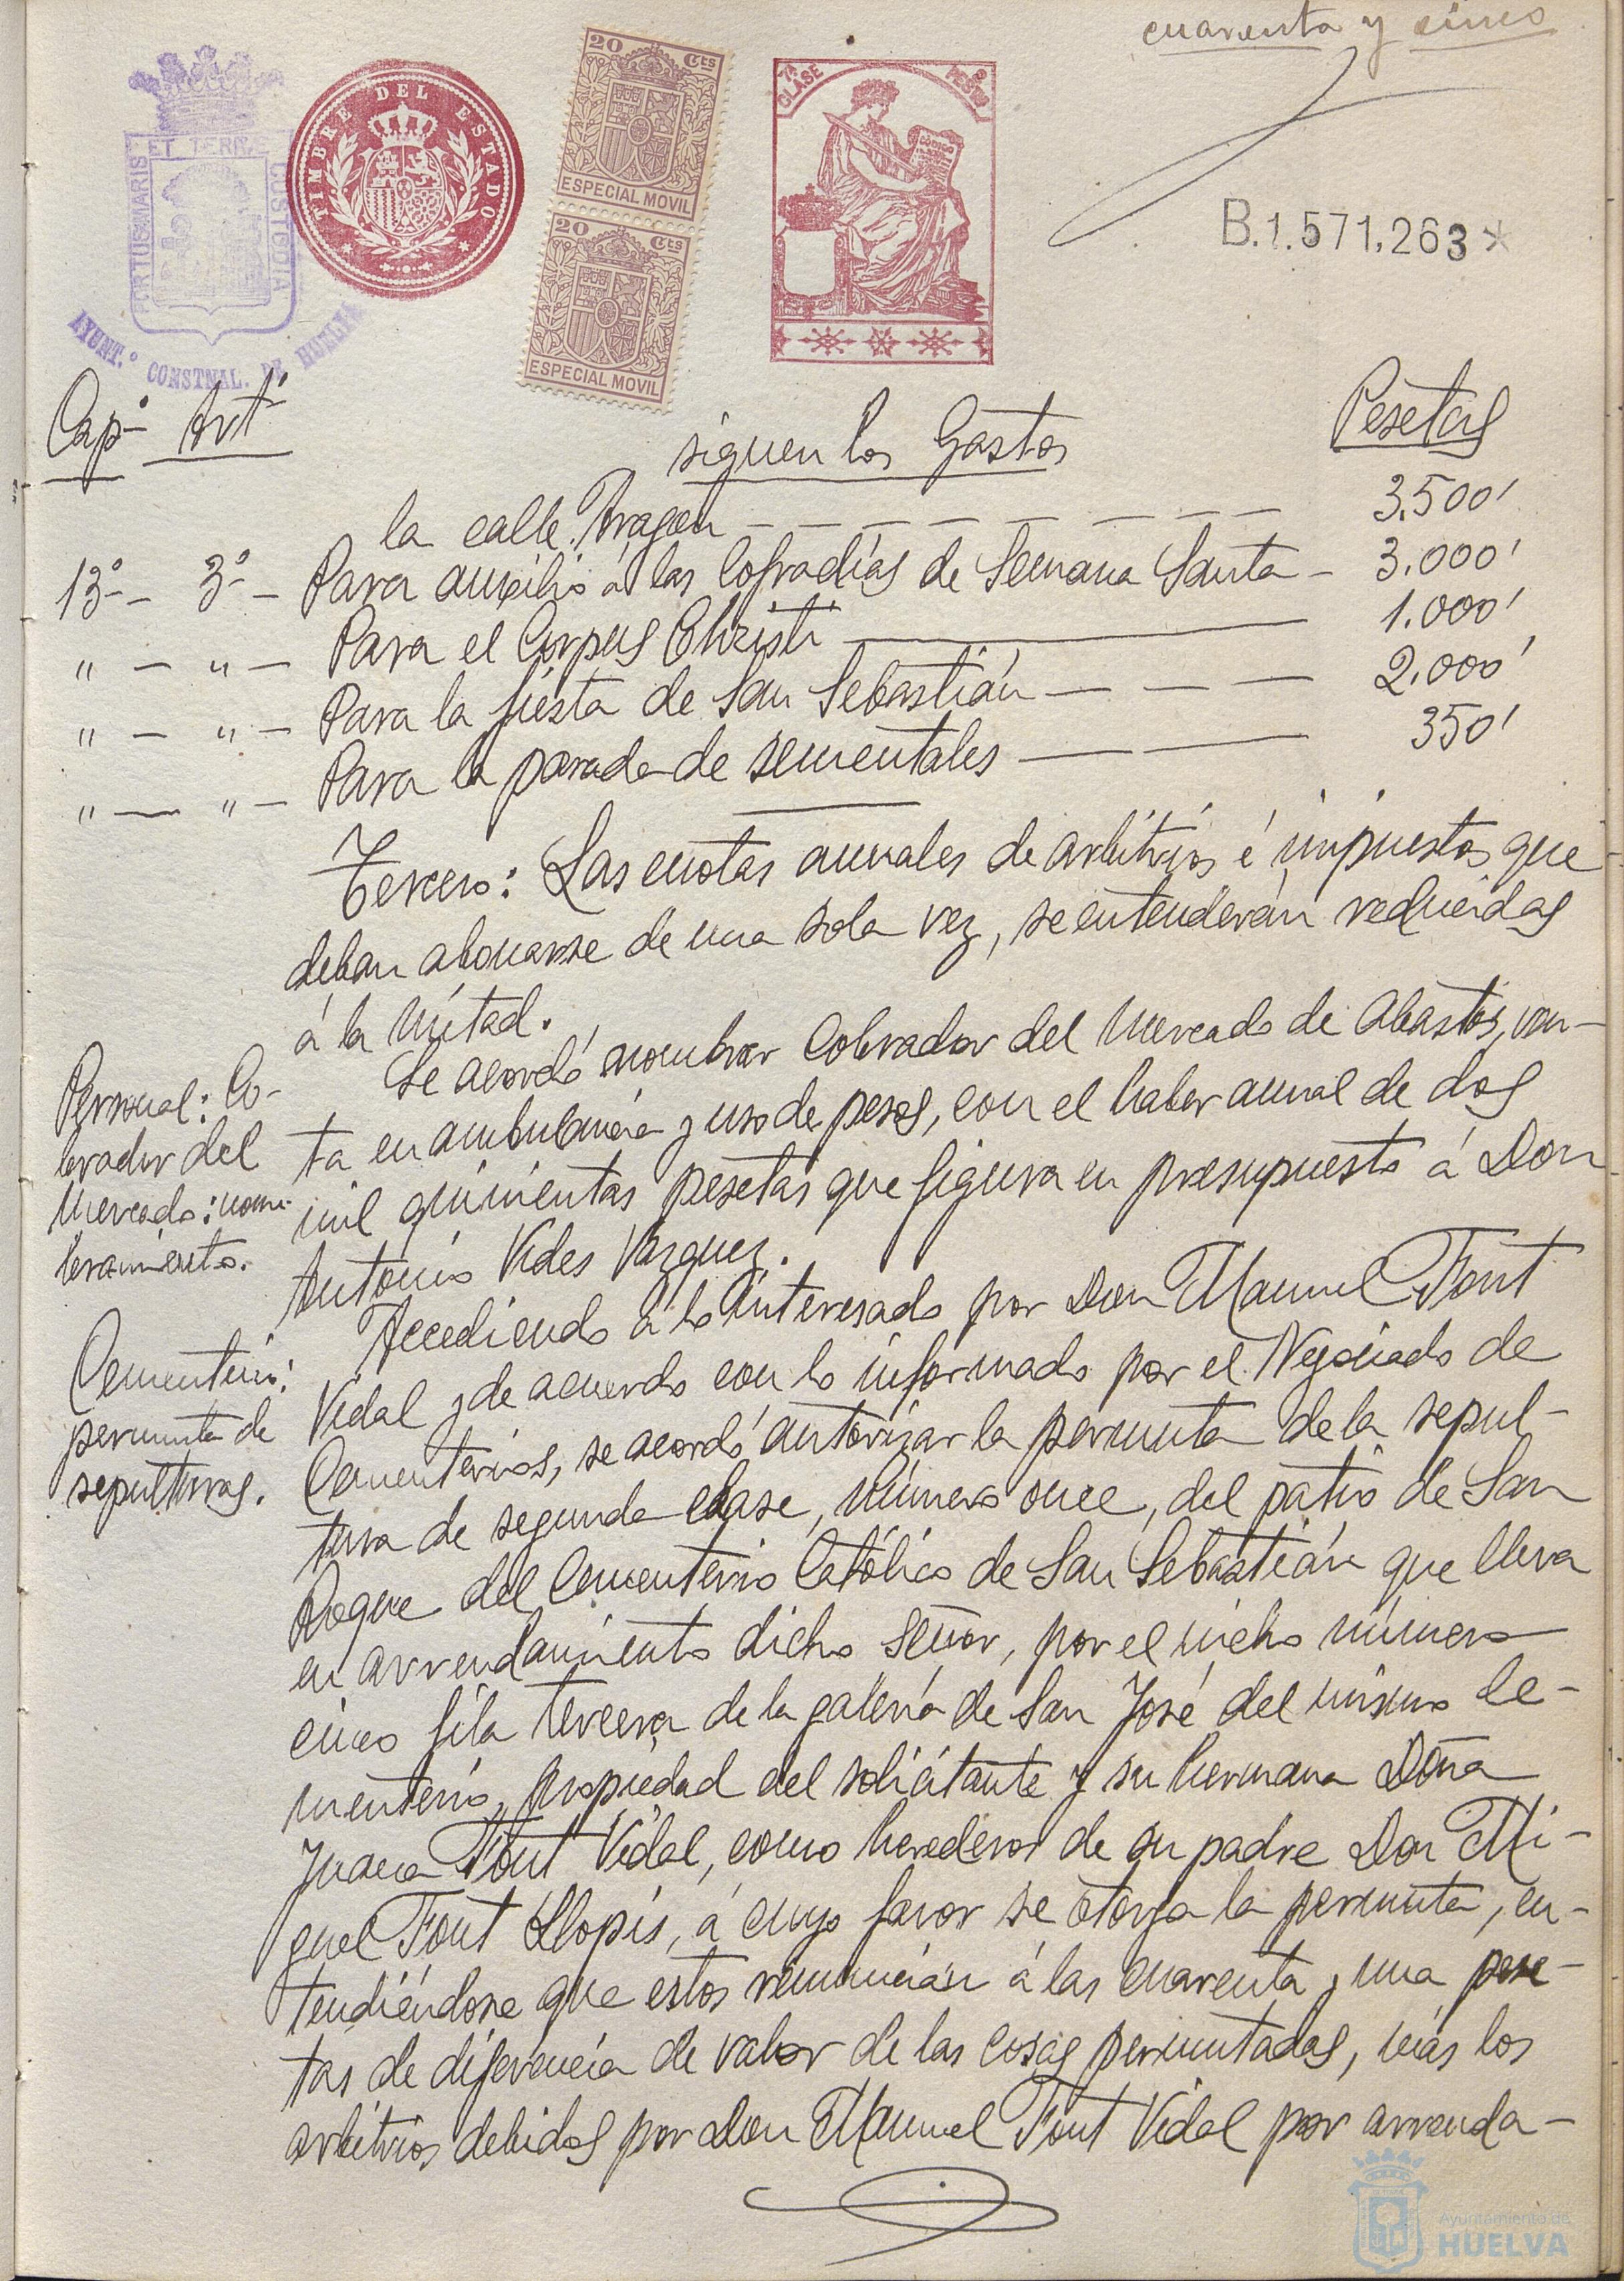 cuarenta y cinco
PORTUS MARIS ET TERRÆ CUSTODIA
AYUNT.º CONSTNAL. DE HUELVA
TIMBRE DEL ESTADO
20 Cts
ESPECIAL MOVIL
20 Cts
ESPECIAL MOVIL
7ª CLASE
CÓDIGO
B.1.571.263*
Capº Artº
siguen los Gastos
Pesetas
la calle Aragon — — — — — — — 3.500'
13º — 3º — Para auxilio á las Cofradías de Semana Santa — 3.000'
" — " — Para el Corpus Christi — 1.000'
" — " — Para la fiesta de San Sebastián — — — 2.000'
" — " — Para la parada de sementales — — 350'
Tercero: Las cuotas anuales de arbitrios é impuestos que
deban abonarse de una sola vez, se entenderán reducidas
á la mitad.
Personal: Co-
brador del
Mercado: nom-
bramiento.
Se acordó nombrar Cobrador del Mercado de Abastos, ven-
ta en ambulancia y uso de pesos, con el haber anual de dos
mil quinientas pesetas que figura en presupuesto á Don
Antonio Vides Vázquez.
Cementerio:
permuta de
sepulturas.
Accediendo á lo interesado por Don Manuel Font
Vidal y de acuerdo con lo informado por el Negociado de
Cementerios, se acordó autorizar la permuta de la sepul-
tura de segunda clase, número once, del patio de San
Roque del Cementerio Católico de San Sebastián que lleva
en arrendamiento dicho Señor, por el nicho número
cinco fila tercera de la galería de San José del mismo Ce-
menterio, propiedad del solicitante y su hermana Doña
Juana Font Vidal, como herederos de su padre Don Mi-
guel Font Llopis, á cuyo favor se otorga la permuta, en-
tendiéndose que estos renuncian á las cuarenta y una pese-
tas de diferencia de valor de las cosas permutadas, más los
arbitrios debidos por Don Manuel Font Vidal por arrenda-
Ayuntamiento de
HUELVA